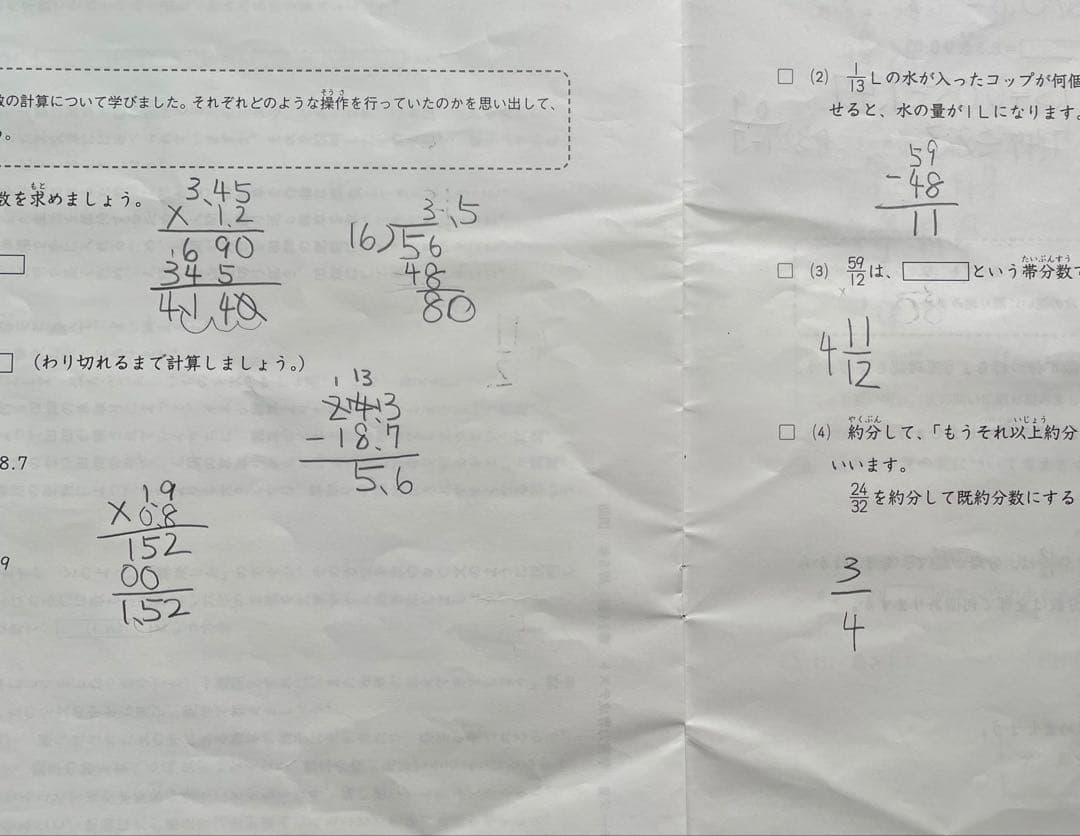 数の計算について学びました。それぞれどのような操作を行っていたのかを思い出して、
う。
数を求めましょう。
3.45
× 1.2
690
345
4.140
3.5
16)56
48
80
(わり切れるまで計算しましょう。)
1 13
24.3
- 18.7
5.6
8.7
1.9
× 0.8
152
00
1.52
9
(2) 1/13 Lの水が入ったコップが何個
せると、水の量が1Lになります。
59
- 48
11
(3) 59/12 は、 という帯分数で
4 11/12
(4) 約分して、「もうそれ以上約分
いいます。
24/32 を約分して既約分数にする
3/4